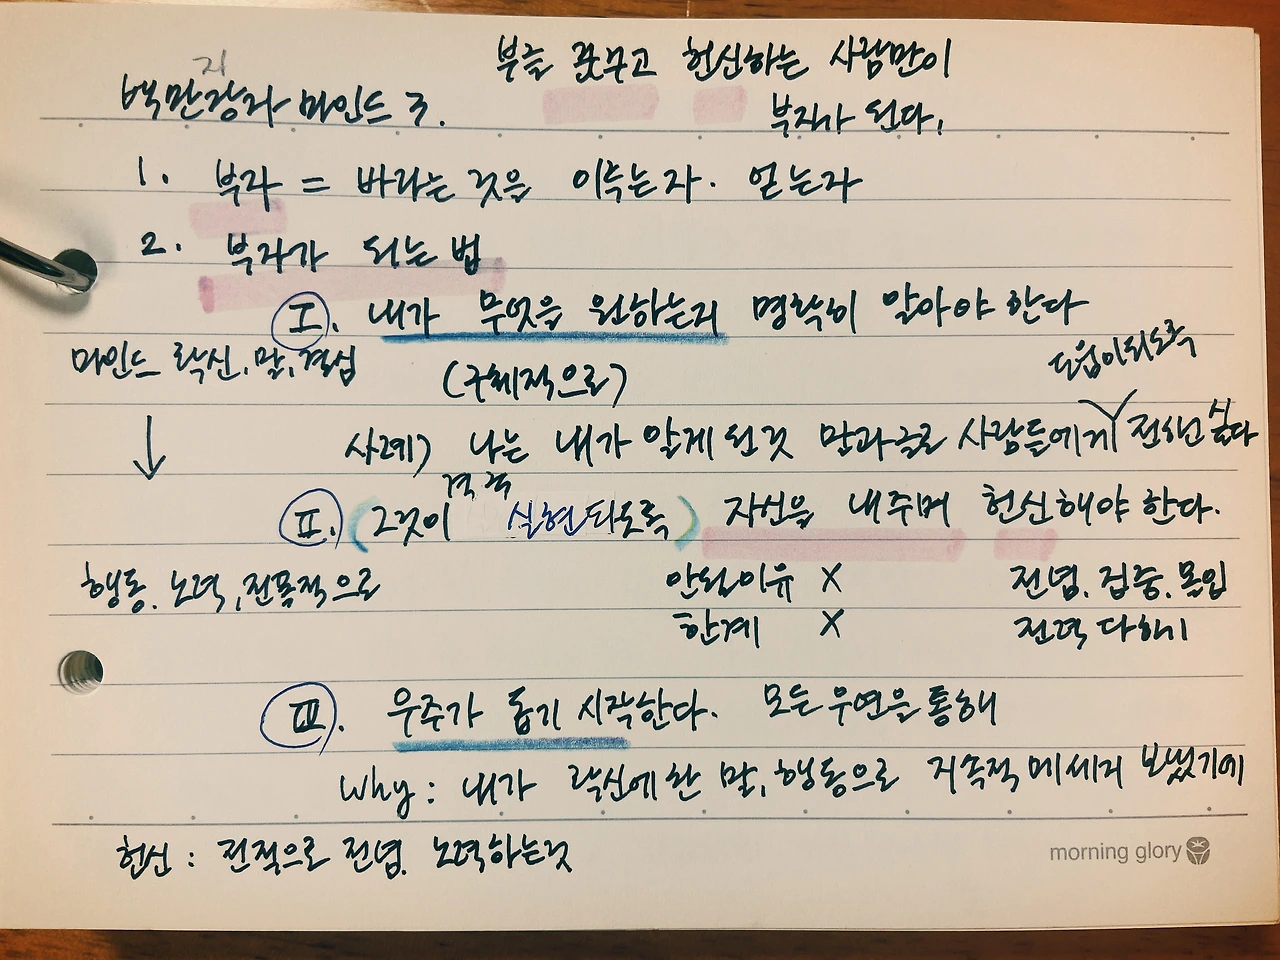 부를 꿈꾸고 헌신하는 사람만이
부자가 된다!
지
백만장자 마인드 3.
1. 부자 = 바라는 것을 이루는자. 얻는자
2. 부자가 되는 법
I. 내가 무엇을 원하는지 명확히 알아야 한다
마인드 확신, 말, 결심
(구체적으로)
도움이되도록
사례) 나는 내가 알게 된것 말과글로 사람들에게 전하고 싶다
II. (그것이 실현되도록) 자신을 내주며 헌신해야 한다.
행동. 노력, 전폭적으로
안될이유 X
전념. 집중. 몰입
한계 X
전력 다하기
III. 우주가 돕기 시작한다. 모든 우연을 통해
Why : 내가 확신에찬 말, 행동으로 지속적 메세지 보냈기에
헌신 : 전적으로 전념. 노력하는것
morning glory